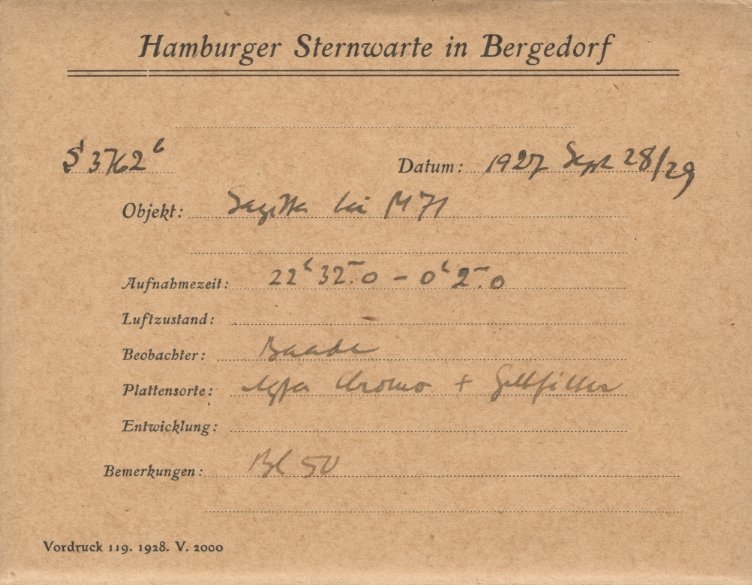 Hamburger Sternwarte in Bergedorf
S 3762 b Datum: 1927 Sept 28/29
Objekt: Sagitta bei M 71
Aufnahmezeit: 22h 32m.0 - 0h 2m.0
Luftzustand:
Beobachter: Baade
Plattensorte: Agfa Chromo + Gelbfilter
Entwicklung:
Bemerkungen: Bl 50
Vordruck 119. 1928. V. 2000